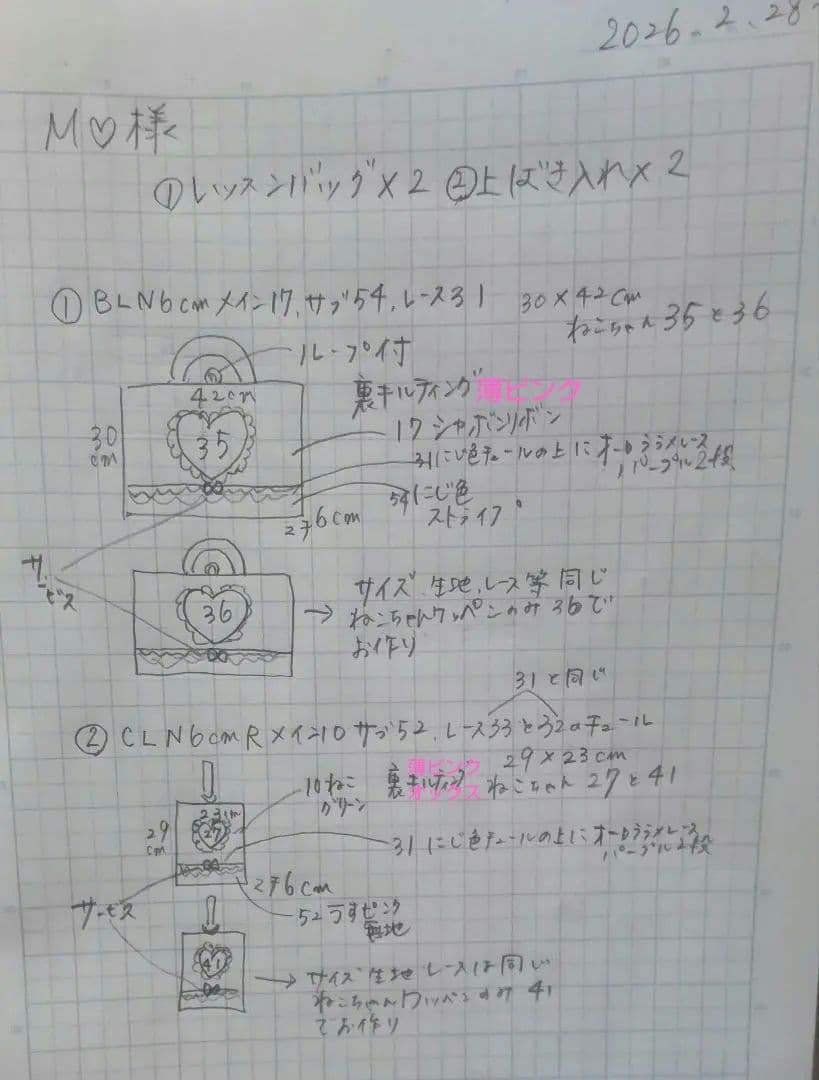 2026.2.28
M♡様
①レッスンバッグ×2 ②上ばき入れ×2
①BLN6cmメイン17、サブ54、レース31 30×42cm
ねこちゃん35と36
ループ付
42cm
裏キルティング薄ピンク
30cm
35
17シャボンリボン
31にじ色チュールの上にオーロララメレース
パープル2段
54にじ色
ストライプ
マチ6cm
サービス
36
サイズ、生地、レース等同じ
ねこちゃんワッペンのみ36で
お作り
31と同じ
②CLN6cmRメイン10サブ52、レース33と32のチュール
29×23cm
裏キルティング
薄ピンク
オックス
ねこちゃん27と41
10ねこ
グリーン
23cm
27
29cm
31にじ色チュールの上にオーロララメレース
パープル2段
マチ6cm
サービス
52うすピンク
無地
41
サイズ生地レースは同じ
ねこちゃんワッペンのみ41
でお作り